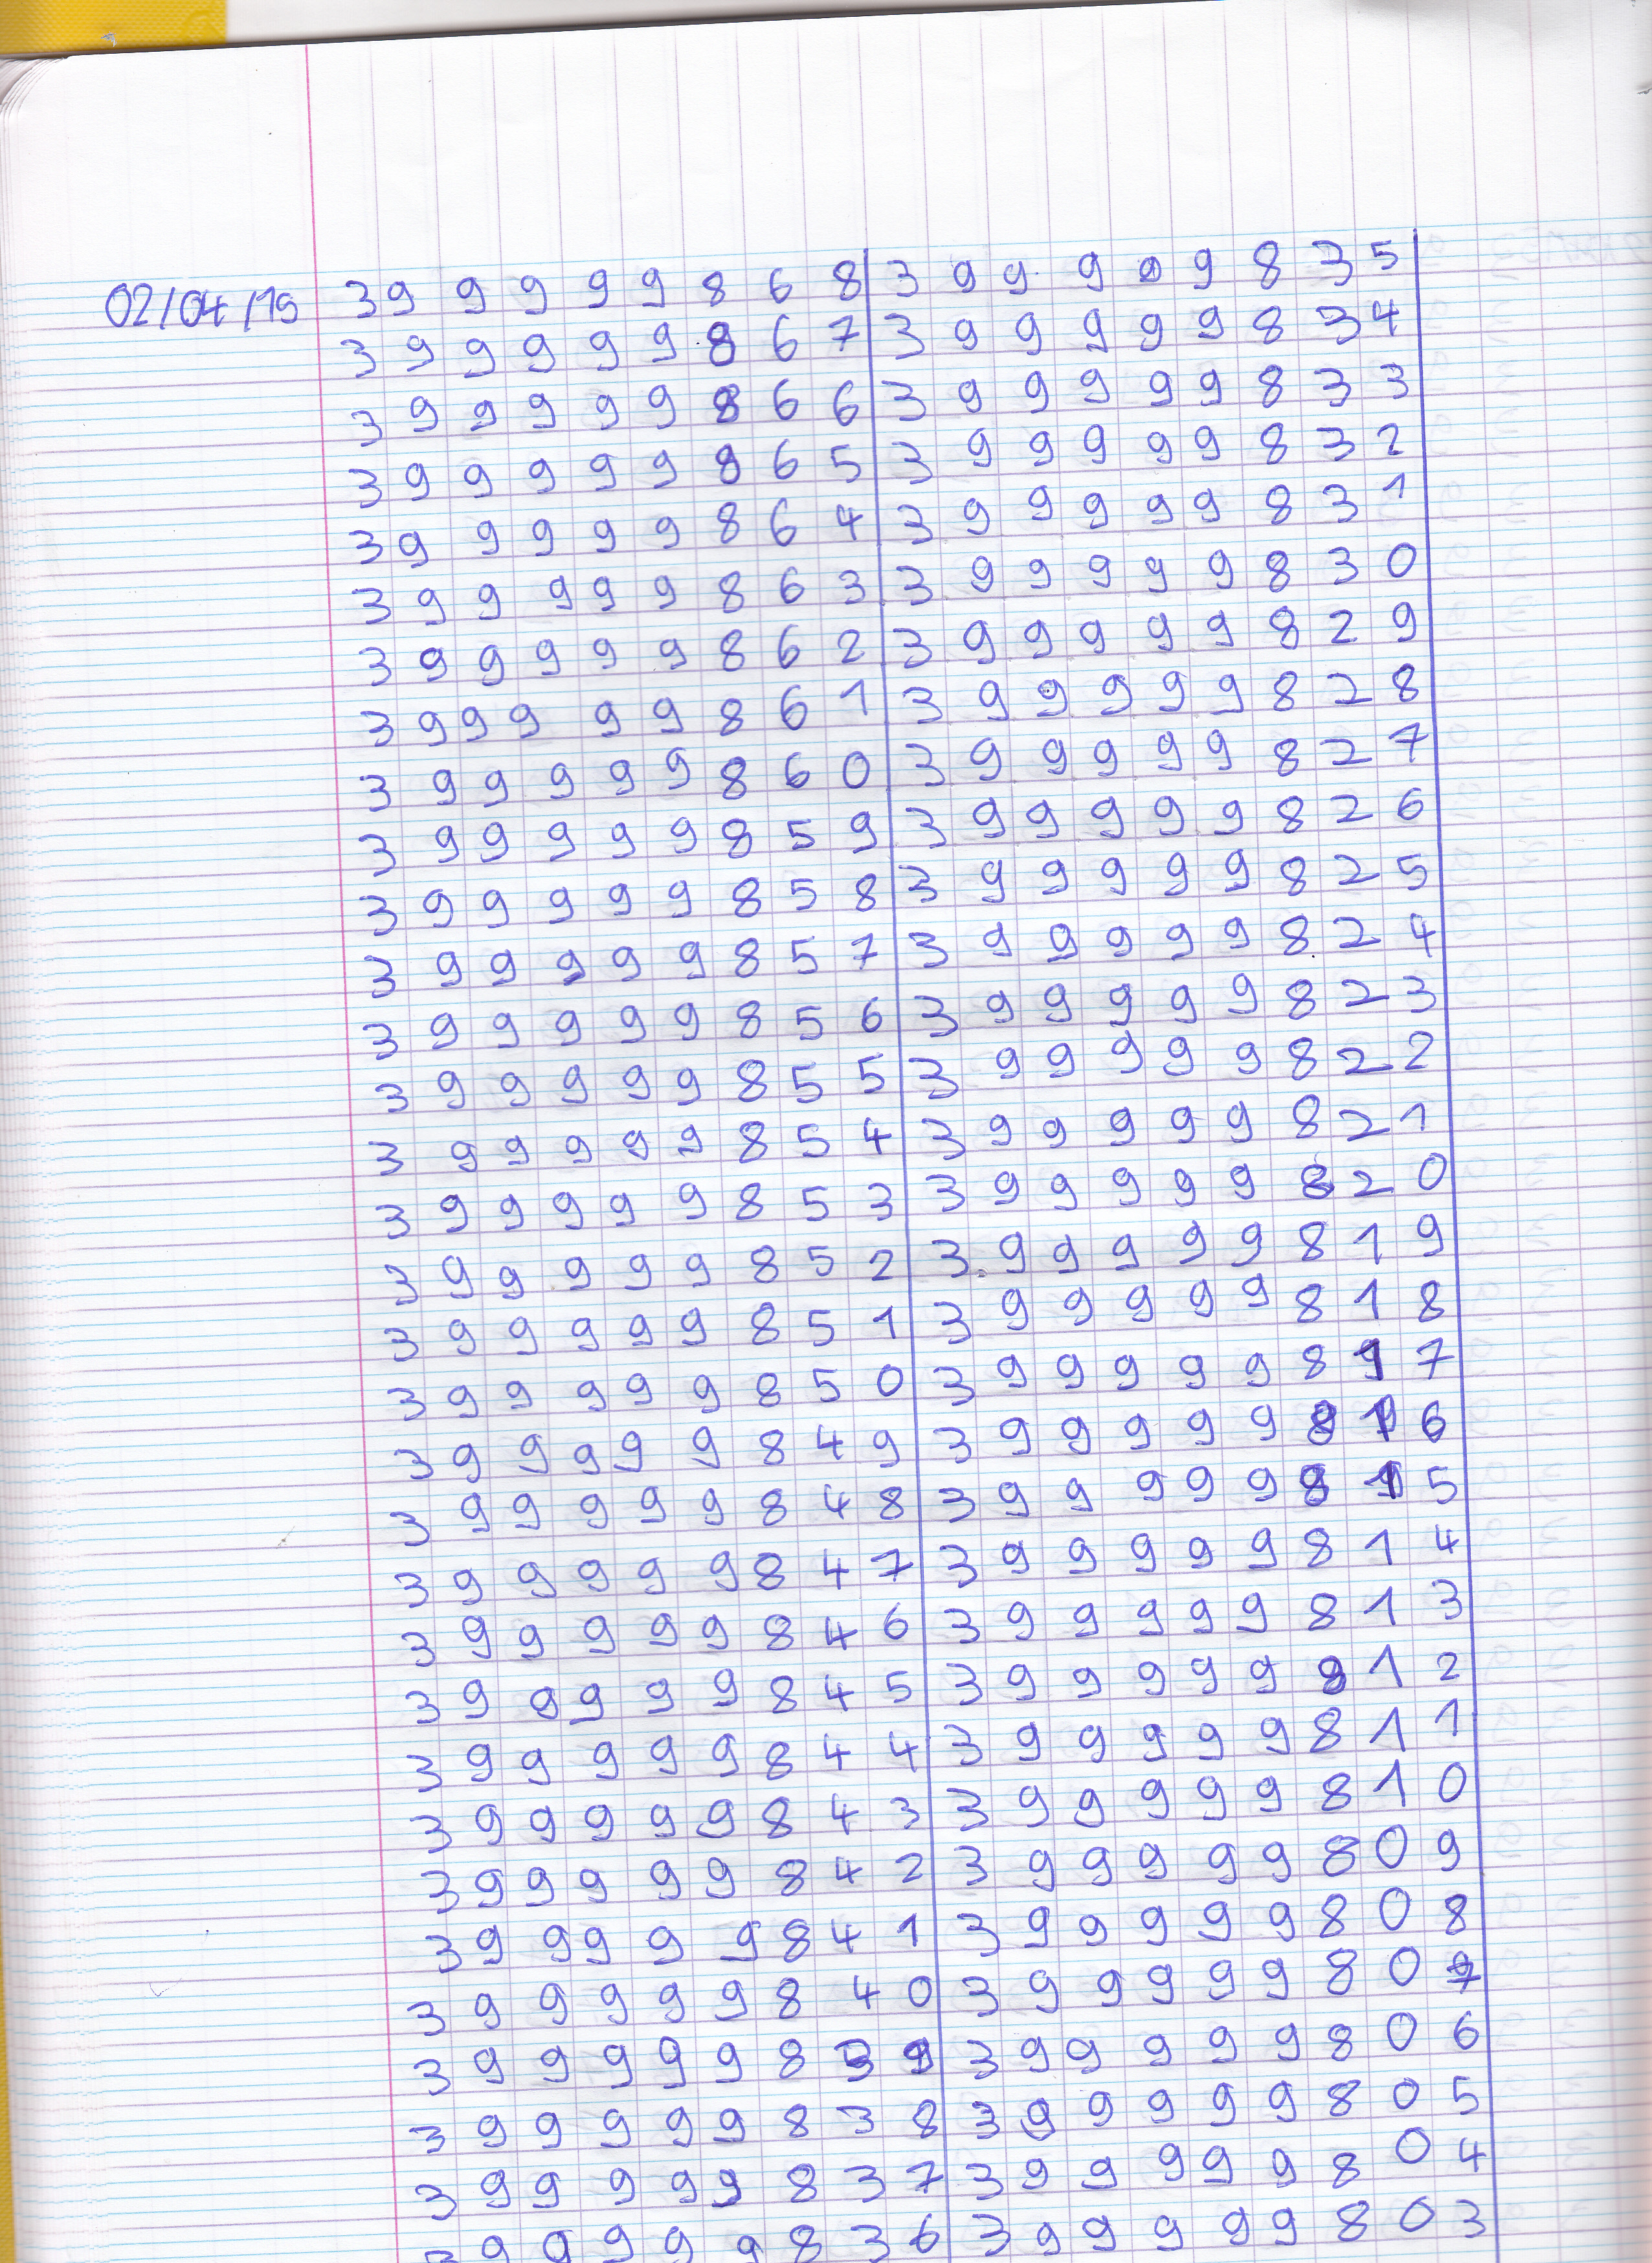 02/04/19
399999868
399999867
399999866
399999865
399999864
399999863
399999862
399999861
399999860
399999859
399999858
399999857
399999856
399999855
399999854
399999853
399999852
399999851
399999850
399999849
399999848
399999847
399999846
399999845
399999844
399999843
399999842
399999841
399999840
399999839
399999838
399999837
399999836
399999835
399999834
399999833
399999832
399999831
399999830
399999829
399999828
399999827
399999826
399999825
399999824
399999823
399999822
399999821
399999820
399999819
399999818
399999817
399999816
399999815
399999814
399999813
399999812
399999811
399999810
399999809
399999808
399999807
399999806
399999805
399999804
399999803